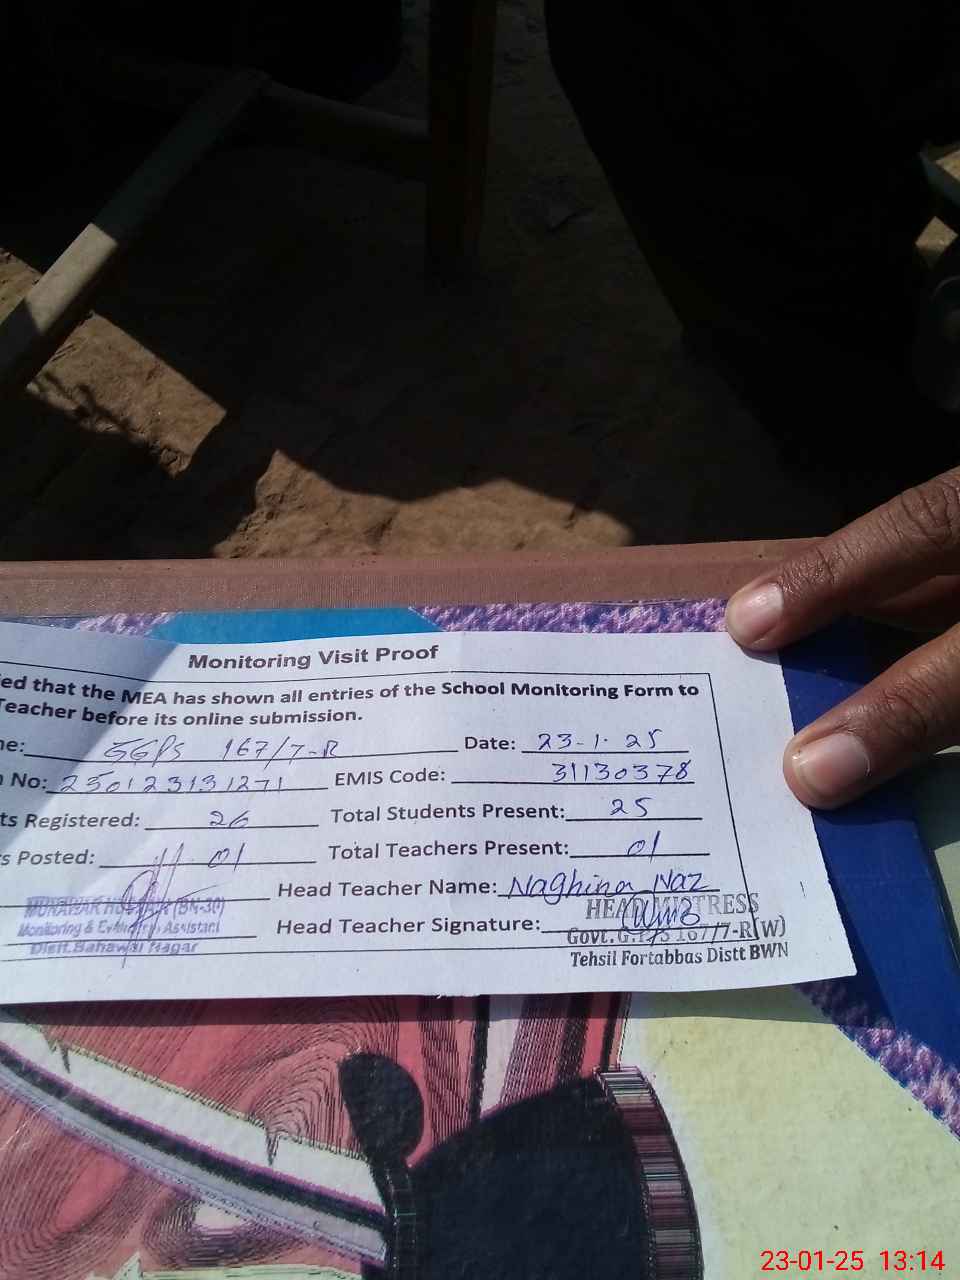 Monitoring Visit Proof
ied that the MEA has shown all entries of the School Monitoring Form to
Teacher before its online submission.
ne: GGPS 167/7-R Date: 23-1-25
n No: 250123131271 EMIS Code: 31130378
ts Registered: 26 Total Students Present: 25
s Posted: 01 Total Teachers Present: 01
Head Teacher Name: Naghina Naz
MUNAWAR (BN-30)
HEAD MISTRESS
Monitoring & Evaluation Assistant
Head Teacher Signature:
Govt. G.P/S 167/7-R(W)
Distt. Bahawal Nagar
Tehsil Fortabbas Distt BWN
23-01-25 13:14